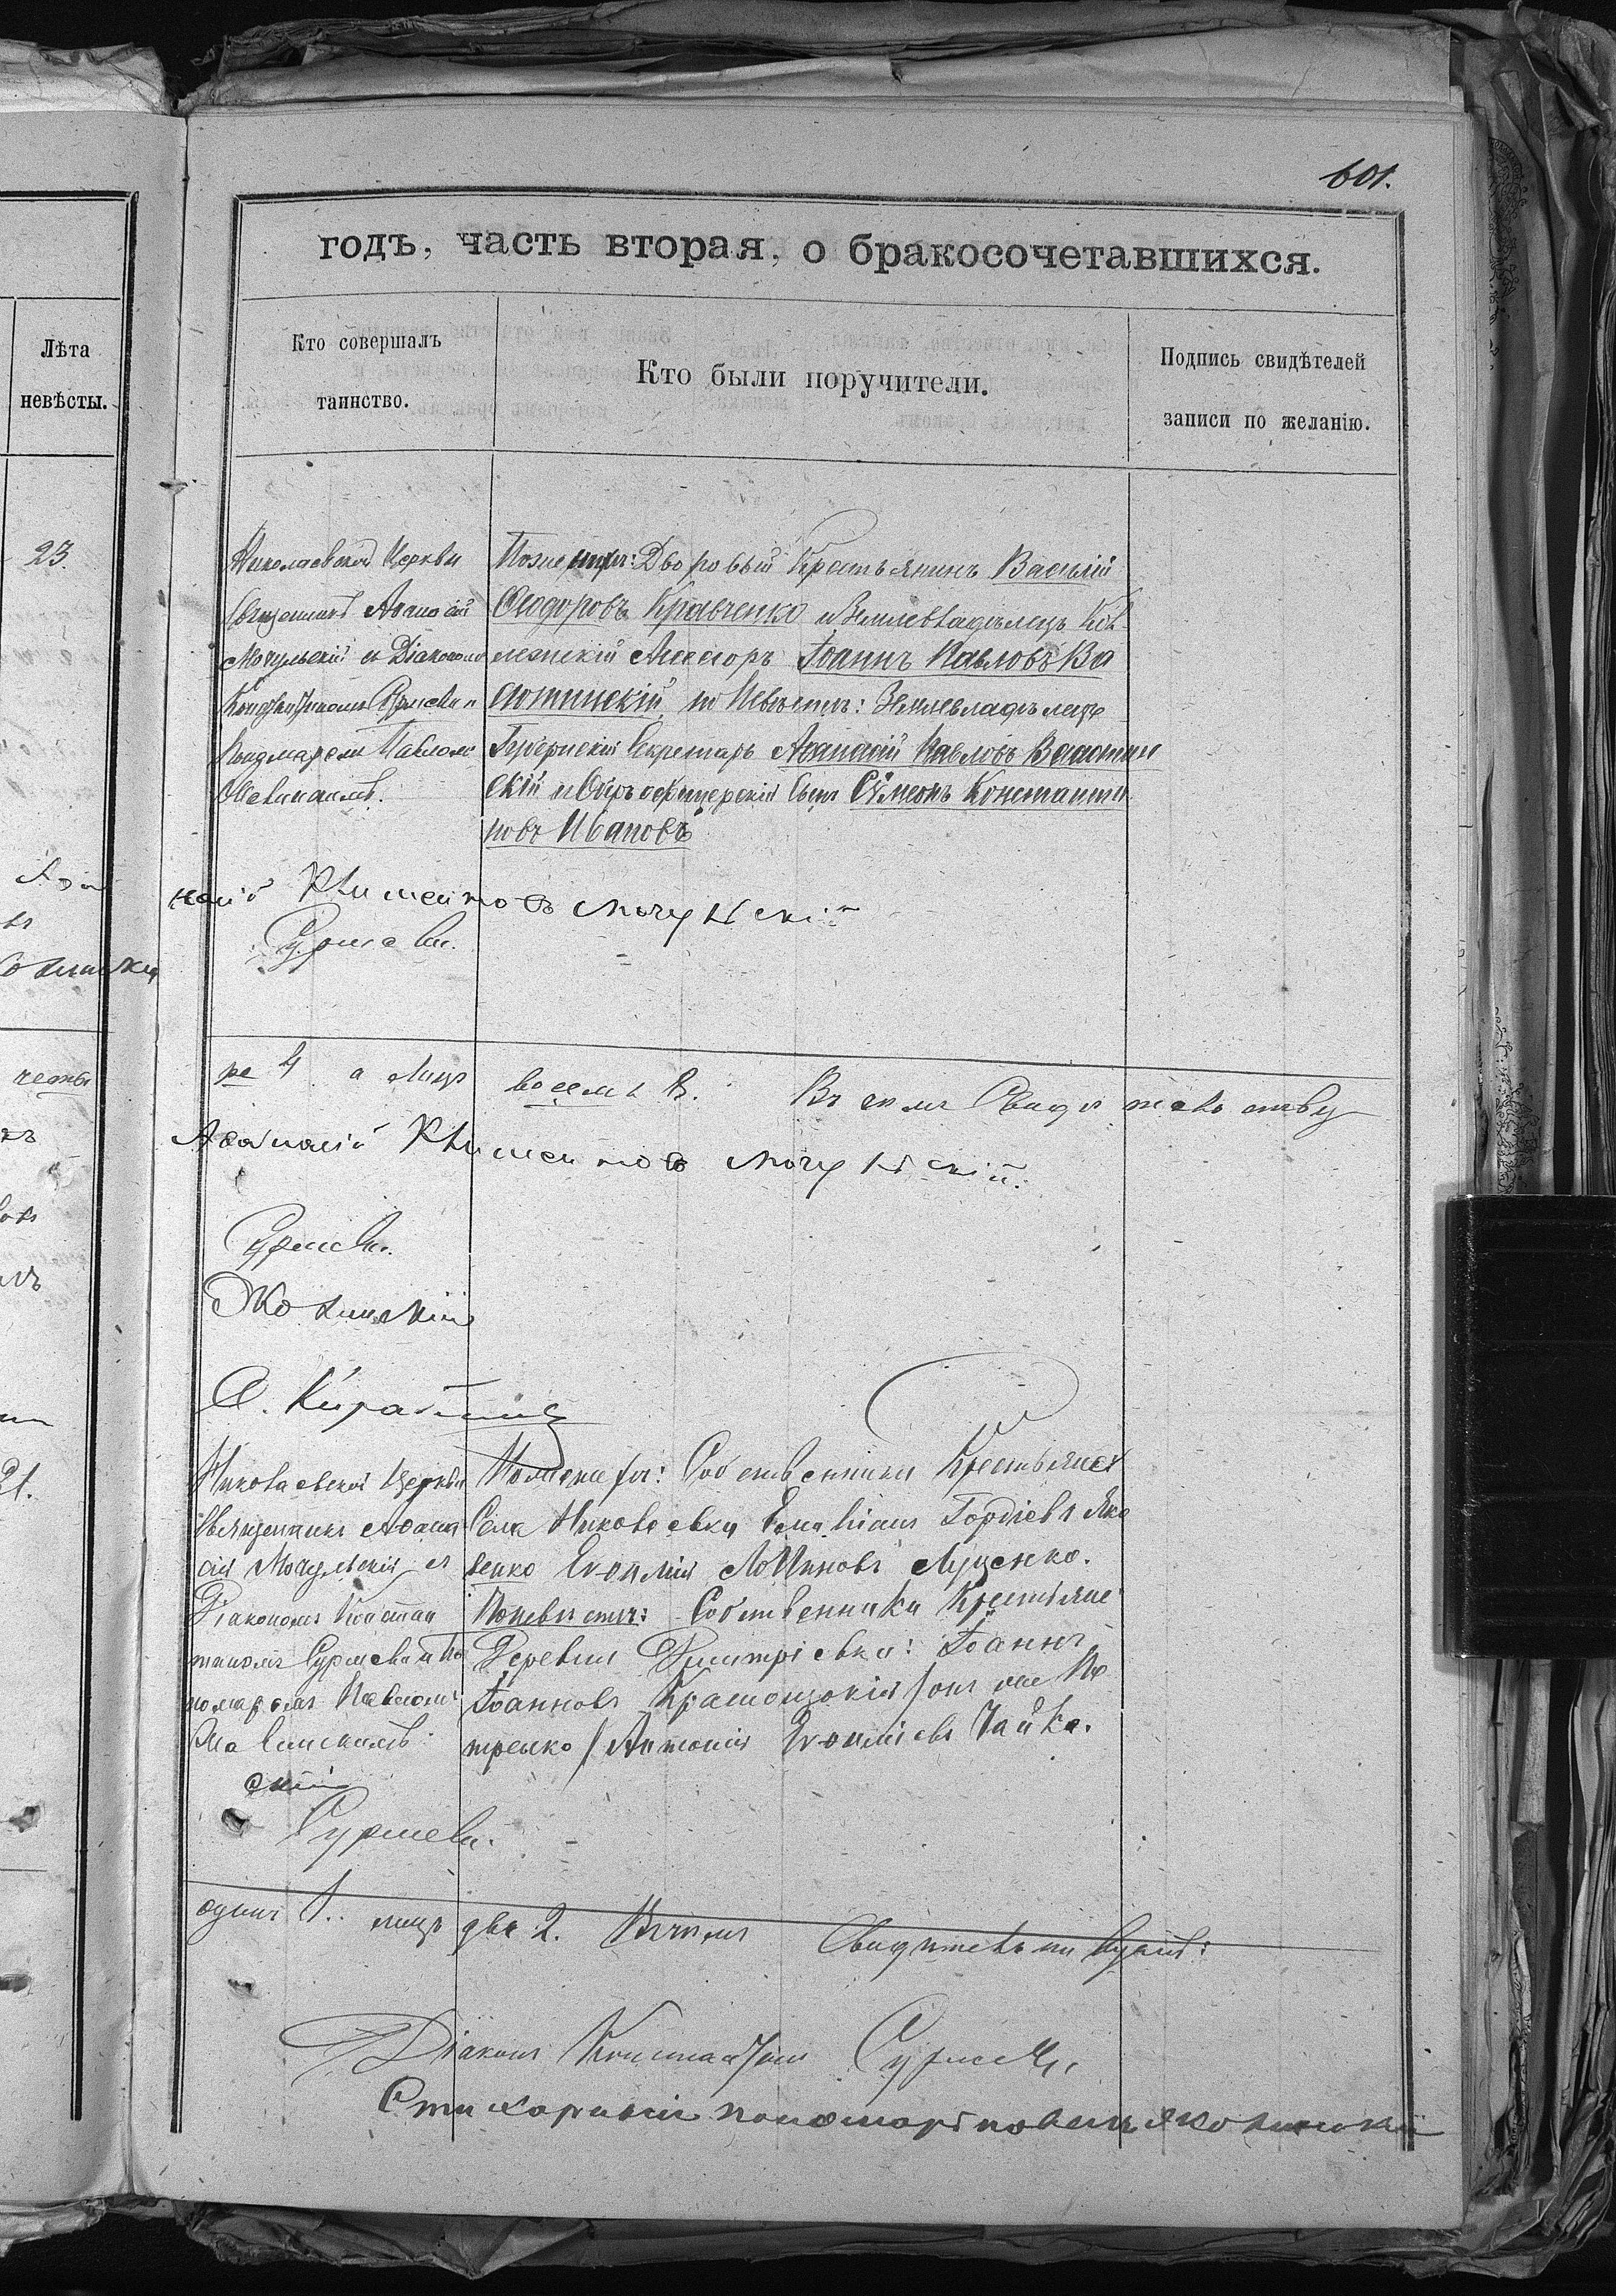 601.
годъ, часть вторая, о бракосочетавшихся.
Лѣта
невѣсты.
Кто совершалъ
таинство.
Кто были поручители.
Подпись свидѣтелей
записи по желанію.
23.
Николаевской Церкви
Священникъ Аѳанасій
Мочульскій съ Діакономъ
Сурмевимъ
Пономаремъ Павломъ
По жениху: Дворовый Крестьянинъ Василій
Ѳеодоровъ Кравченко и Землевладѣлецъ Кол
лежскій Ассесоръ Іоаннъ Павловъ Ва
сютинскій, по Невѣстѣ: Землевладѣлецъ
Губернскій Секретарь Аѳанасій Павловъ Васютин
скій и Оберъ офицерскій Сынъ Сѷмеонъ Константи
новъ Ивановъ
насій Климентовъ Мочульскій
Сурмеви.
ре 4 а лицъ восемь 8. Въ семъ Свидѣтельству
Аѳанасій Климентовъ Мочульскій.
Сурмеви.
21.
Николаевской Церкви
Священникъ Аѳана
сій Мочульскій съ
Діакономъ Констан
тиномъ Сурмевимъ По
номаремъ Павломъ
По жениху: Собственники Крестьяне
Села Николаевки Емиліанъ Гордіевъ Яко
венко Евѳимій Логиновъ Луценко.
По невѣстѣ: Собственники Крестьяне
Деревни Димитріевки: Іоаннъ
Іоанновъ онъ же Пе
тренко / Антоній Евѳиміевъ Чайка.
скій
Сурмеви.
одинъ 1. лицъ два 2. Въ чемъ Свидѣтельствуемъ:
Діаконъ Константинъ Сурмеви
Стихарный пономарь Павелъ